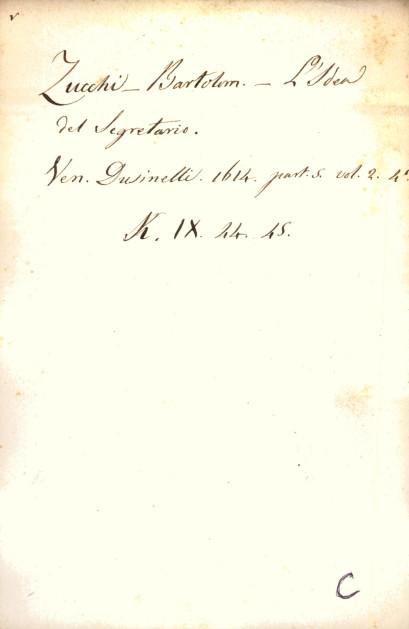 v
Zucchi - Bartolom. - L'Idea
del Segretario.
Ven. Dusinelli. 1614. part. 5. vol. 2. 4°
K. IX. 44. 45.
C